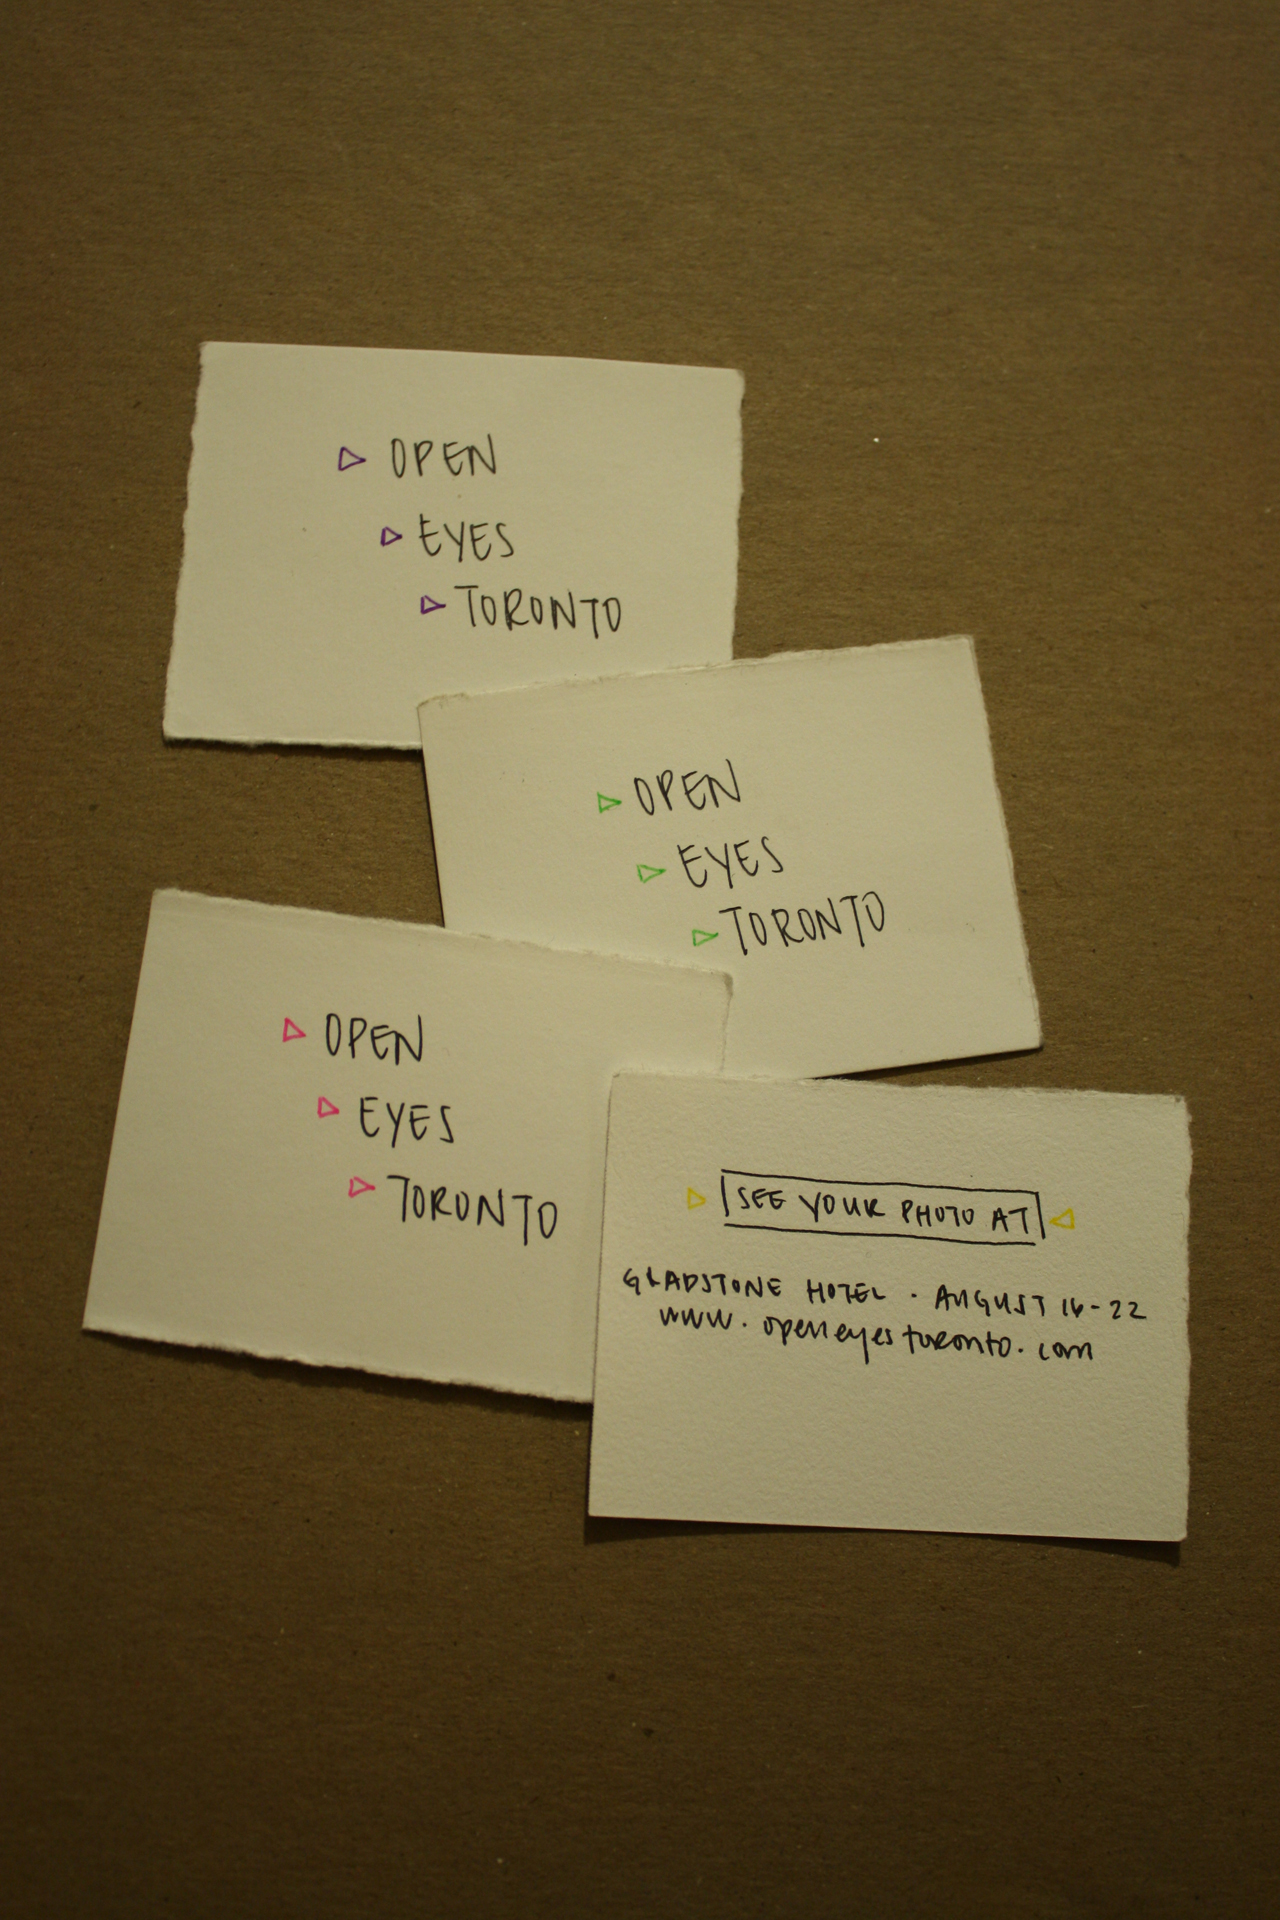 OPEN
EYES
TORONTO
OPEN
EYES
TORONTO
OPEN
EYES
TORONTO
SEE YOUR PHOTO AT
GLADSTONE HOTEL · AUGUST 16-22
www.openeyestoronto.com